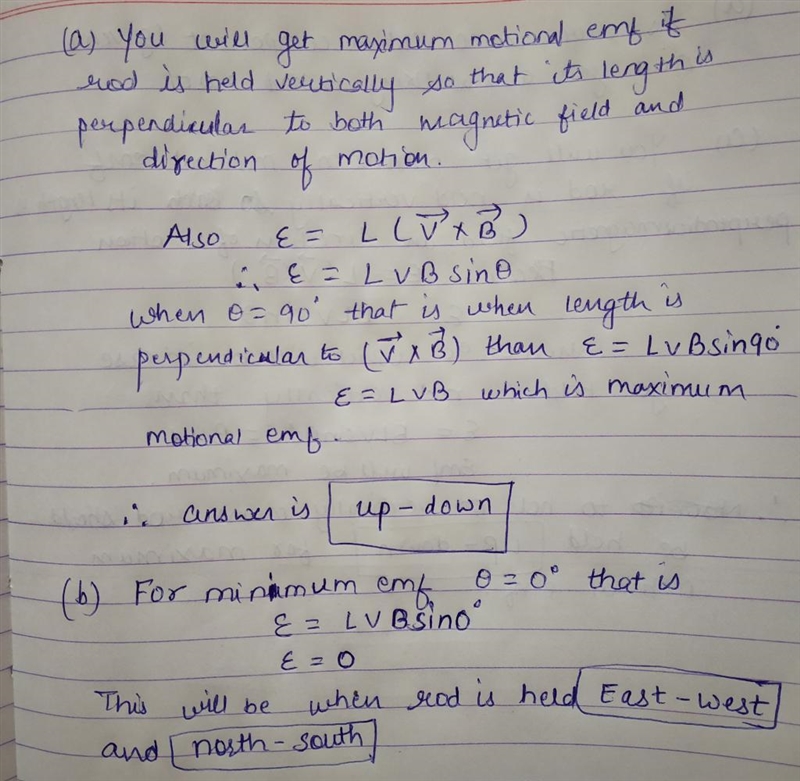 (a) You will get maximum motional emf if
rod is held vertically so that its length is
perpendicular to both magnetic field and
direction of motion.
Also ε = L (V⃗ × B⃗)
∴ ε = L V B sinθ
when θ = 90° that is when length is
perpendicular to (V⃗ × B⃗) than ε = LVB sin90°
ε = LVB which is maximum
motional emf.
∴ answer is up - down
(b) For minimum emf θ = 0° that is
ε = LVB sin0°
ε = 0
This will be when rod is held East - west
and north - south